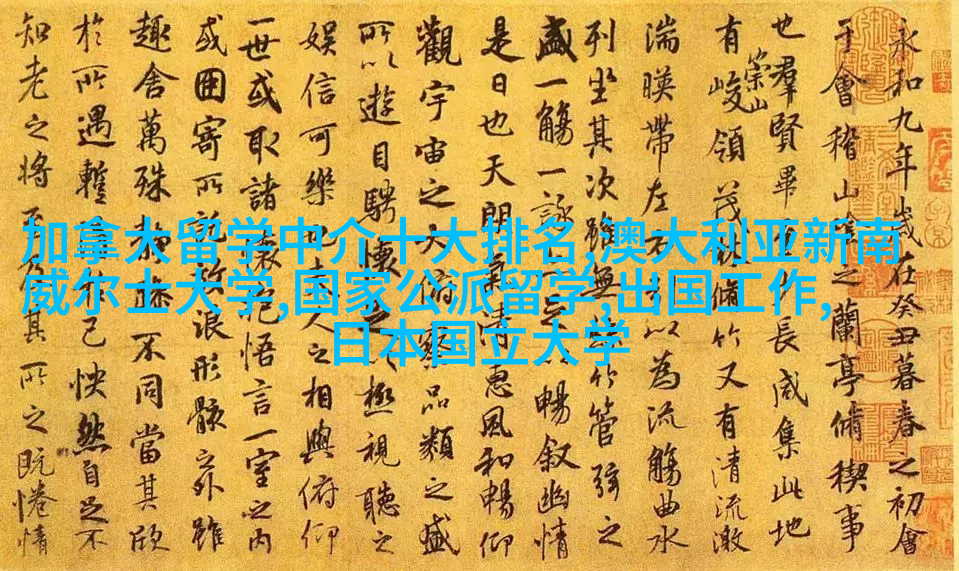 加拿大留学中介十大排名,澳大利亚新南
威尔士大学,国家公派留学,出国工作,
日本国立大学
永和九年歲在癸丑暮春之初會
于會稽山陰之蘭亭脩稧事
也羣賢畢至少長咸集此地
有崇山峻領茂林脩竹又有清流激
湍暎帶左右引以為流觴曲水
列坐其次雖無絲竹管弦之
盛一觴一詠亦足以暢叙幽情
是日也天朗氣清惠風和暢仰
觀宇宙之大俯察品類之盛
所以遊目騁懷足以極視聽之
娛信可樂也夫人之相與俯仰
一世或取諸懷抱悟言一室之內
或因寄所託放浪形骸之外雖
趣舍萬殊靜躁不同當其欣
於所遇蹔得於己怏然自足不
知老之將至及其所之既惓情